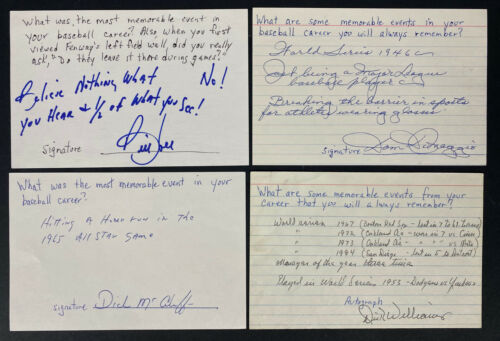 What was the most memorable event in
your baseball career? Also, when you first
viewed Fenway's left field wall, did you really
ask, "Do they leave it there during games?"
Believe Nothing What No!
You Hear & 1/2 of What you See!
Signature Bill Lee
What are some memorable events in your
baseball career you will always remember?
World Series 1946
Just being a Major League
baseball player
Breaking the barrier in sports
for athletes wearing glasses
Signature Dom DiMaggio
What was the most memorable event in your
baseball career?
Hitting A Home run in the
1965 All Star Game
signature Dick McAuliffe
What are some memorable events from your
career that you will always remember?
World series 1967 (Boston Red Sox - lost in 7 to St. Louis)
" " 1972 (Oakland A's - won in 7 vs.
" " 1973 (Oakland A's " " " vs Mets)
" " 1984 (San Diego - lost in 5 to Detroit)
Manager of the year
Played in World Series 1953 - Dodgers vs Yankees
Autograph
Dick Williams